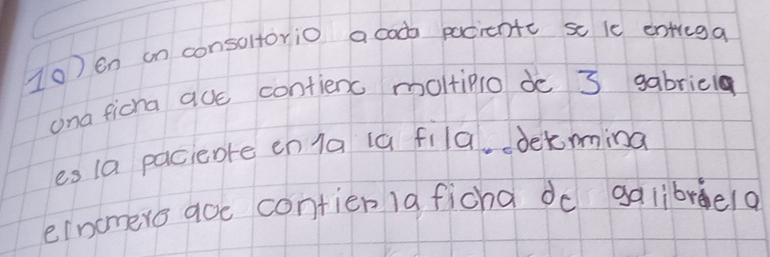 10) en un consultorio a cada paciente se le entrega
una ficha que contiene multiplo de 3 gabriela
es la paciente en 1a la fila.. determina
el numero que contien la ficha de galibriela